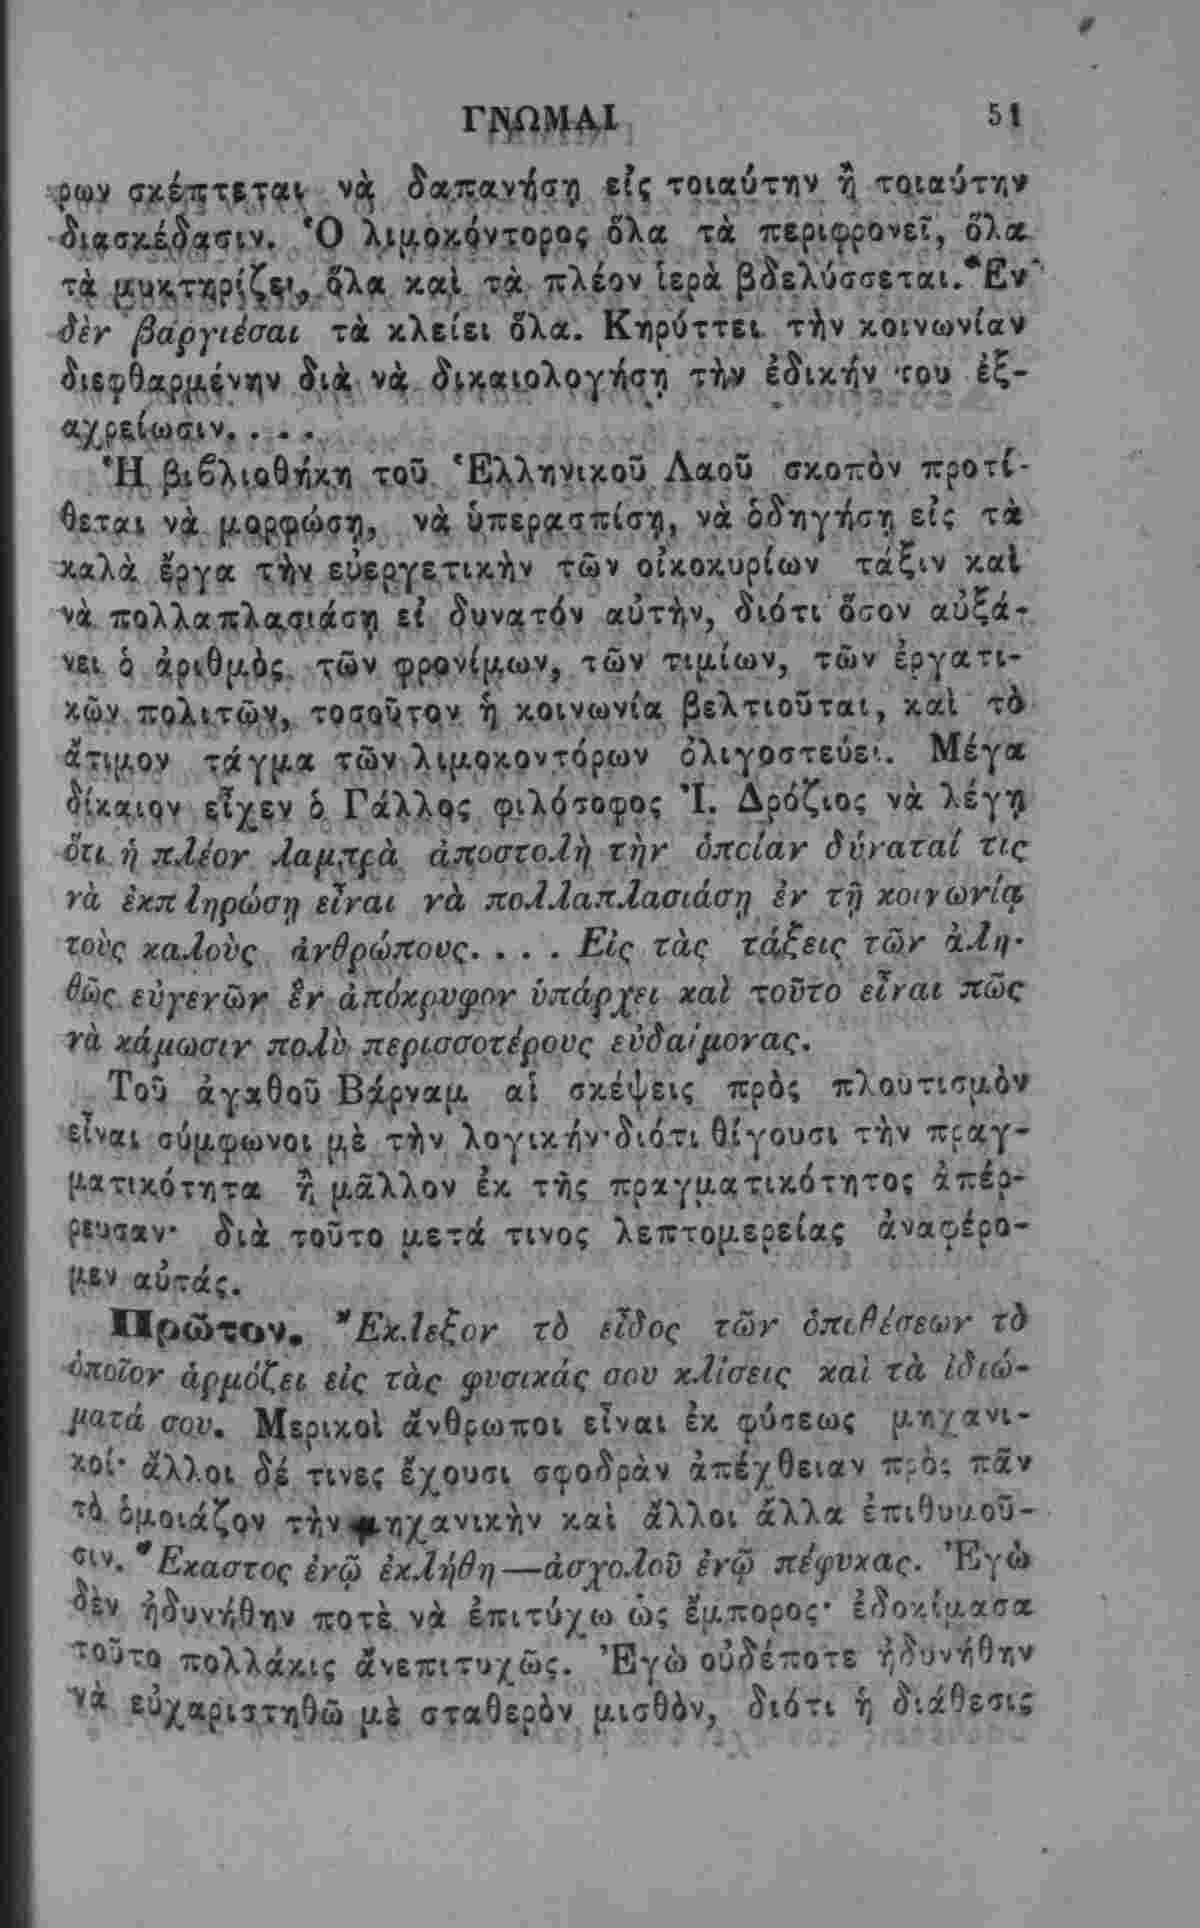 ΓΝΩΜΑΙ 51
ρων σκέπτεται νὰ δαπανήσῃ εἰς τοιαύτην ἢ τοιαύτην
διασκέδασιν. Ὁ λιμοκόντορος ὅλα τὰ περιφρονεῖ, ὅλα
τὰ μυκτηρίζει, ὅλα καὶ τὰ πλέον ἱερὰ βδελύσσεται. Ἓν
δὲν βαργιέσαι τὰ κλείει ὅλα. Κηρύττει τὴν κοινωνίαν
διεφθαρμένην διὰ νὰ δικαιολογήσῃ τὴν ἐδικήν του ἐξ-
αχρείωσιν. . . .
Ἡ βιβλιοθήκη τοῦ Ἑλληνικοῦ Λαοῦ σκοπὸν προτί-
θεται νὰ μορφώσῃ, νὰ ὑπερασπίσῃ, νὰ ὁδηγήσῃ εἰς τὰ
καλὰ ἔργα τὴν εὐεργετικὴν τῶν οἰκοκυρίων τάξιν καὶ
νὰ πολλαπλασιάσῃ εἰ δυνατόν αὐτὴν, διότι ὅσον αὐξά-
νει ὁ ἀριθμὸς τῶν φρονίμων, τῶν τιμίων, τῶν ἐργατι-
κῶν πολιτῶν, τοσοῦτον ἡ κοινωνία βελτιοῦται, καὶ τὸ
ἄτιμον τάγμα τῶν λιμοκοντόρων ὀλιγοστεύει. Μέγα
δίκαιον εἶχεν ὁ Γάλλος φιλόσοφος Ἰ. Δρόζιος νὰ λέγῃ
ὅτι ἡ πλέον λαμπρὰ ἀποστολὴ τὴν ὁποίαν δύναταί τις
νὰ ἐκπληρώσῃ εἶναι νὰ πολλαπλασιάσῃ ἐν τῇ κοινωνίᾳ
τοὺς καλοὺς ἀνθρώπους. . . . Εἰς τὰς τάξεις τῶν ἀλη-
θῶς εὐγενῶν ἓν ἀπόκρυφον ὑπάρχει καὶ τοῦτο εἶναι πῶς
νὰ κάμωσιν πολὺ περισσοτέρους εὐδαίμονας.
Τοῦ ἀγαθοῦ Βάρναμ αἱ σκέψεις πρὸς πλουτισμὸν
εἶναι σύμφωνοι μὲ τὴν λογικήν· διότι θίγουσι τὴν πραγ-
ματικότητα ἢ μᾶλλον ἐκ τῆς πραγματικότητος ἀπέρ-
ρευσαν· διὰ τοῦτο μετά τινος λεπτομερείας ἀναφέρο-
μεν αὐτάς.
Πρῶτον. Ἔκλεξον τὸ εἶδος τῶν ὑπιθέσεων τὸ
ὁποῖον ἁρμόζει εἰς τὰς φυσικάς σου κλίσεις καὶ τὰ ἰδιώ-
ματά σου. Μερικοὶ ἄνθρωποι εἶναι ἐκ φύσεως μηχανι-
κοί· ἄλλοι δέ τινες ἔχουσι σφοδρὰν ἀπέχθειαν πρὸς πᾶν
τὸ ὁμοιάζον τὴν μηχανικὴν καὶ ἄλλοι ἄλλα ἐπιθυμοῦ-
σιν. Ἕκαστος ἐνῷ ἐκλήθη—ἀσχολοῦ ἐνῷ πέφυκας. Ἐγὼ
δὲν ἠδυνήθην ποτὲ νὰ ἐπιτύχω ὡς ἔμπορος· ἐδοκίμασα
τοῦτο πολλάκις ἀνεπιτυχῶς. Ἐγὼ οὐδέποτε ἠδυνήθην
νὰ εὐχαριστηθῶ μὲ σταθερὸν μισθὸν, διότι ἡ διάθεσις